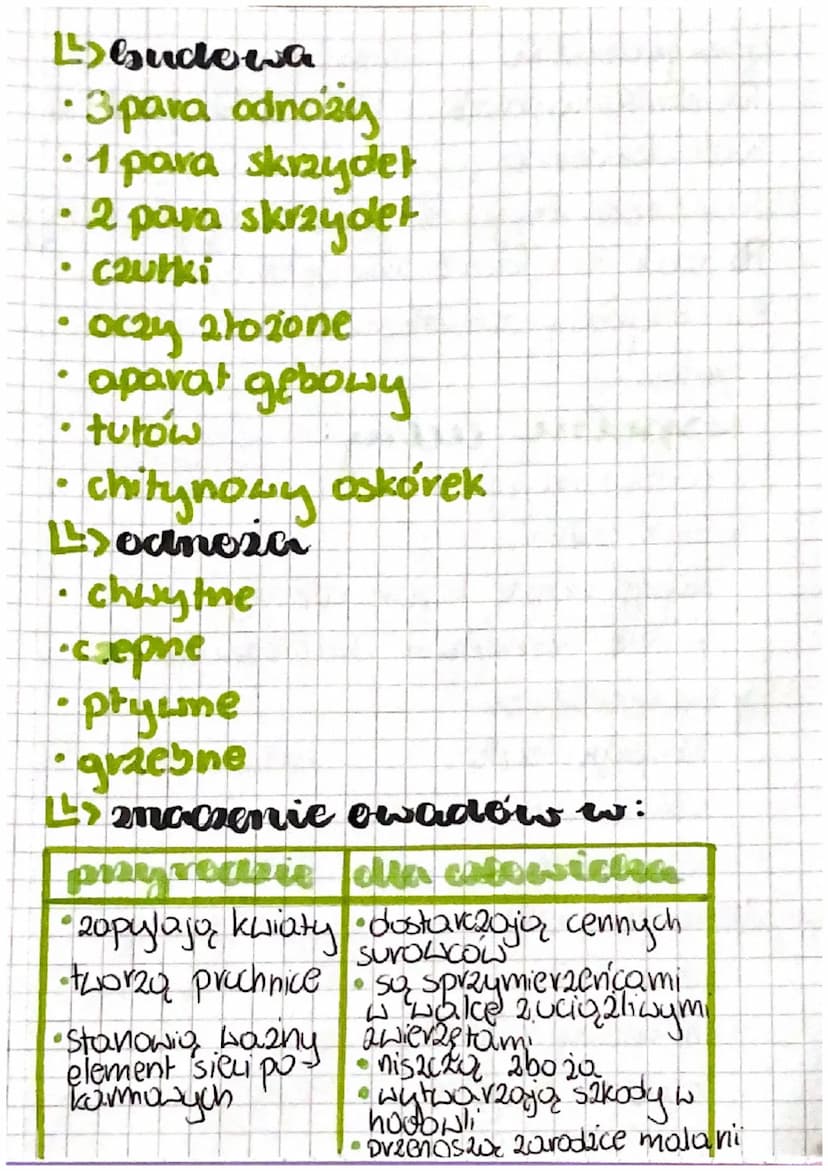 budowa
· 3 para odnóży
· 1 para skrzydeł
· 2 para skrzydeł
· czułki
· oczy złożone
· aparat gębowy
· tułów
· chitynowy oskórek
odnoża
· chwytne
· czepne
· pływne
· grzebne
znaczenie owadów w:
przyrodzie
dla człowieka
· zapylają kwiaty
· tworzą pruchnice
· stanowią ważny
element sieci po-
karmowych
· dostarczają cennych
surowców
· są sprzymierzeńcami
w walce z uciążliwymi
zwierzętami
· niszczą zboża
· wytwarzają szkody w
hodowli
· przenoszą zarodźce malarii